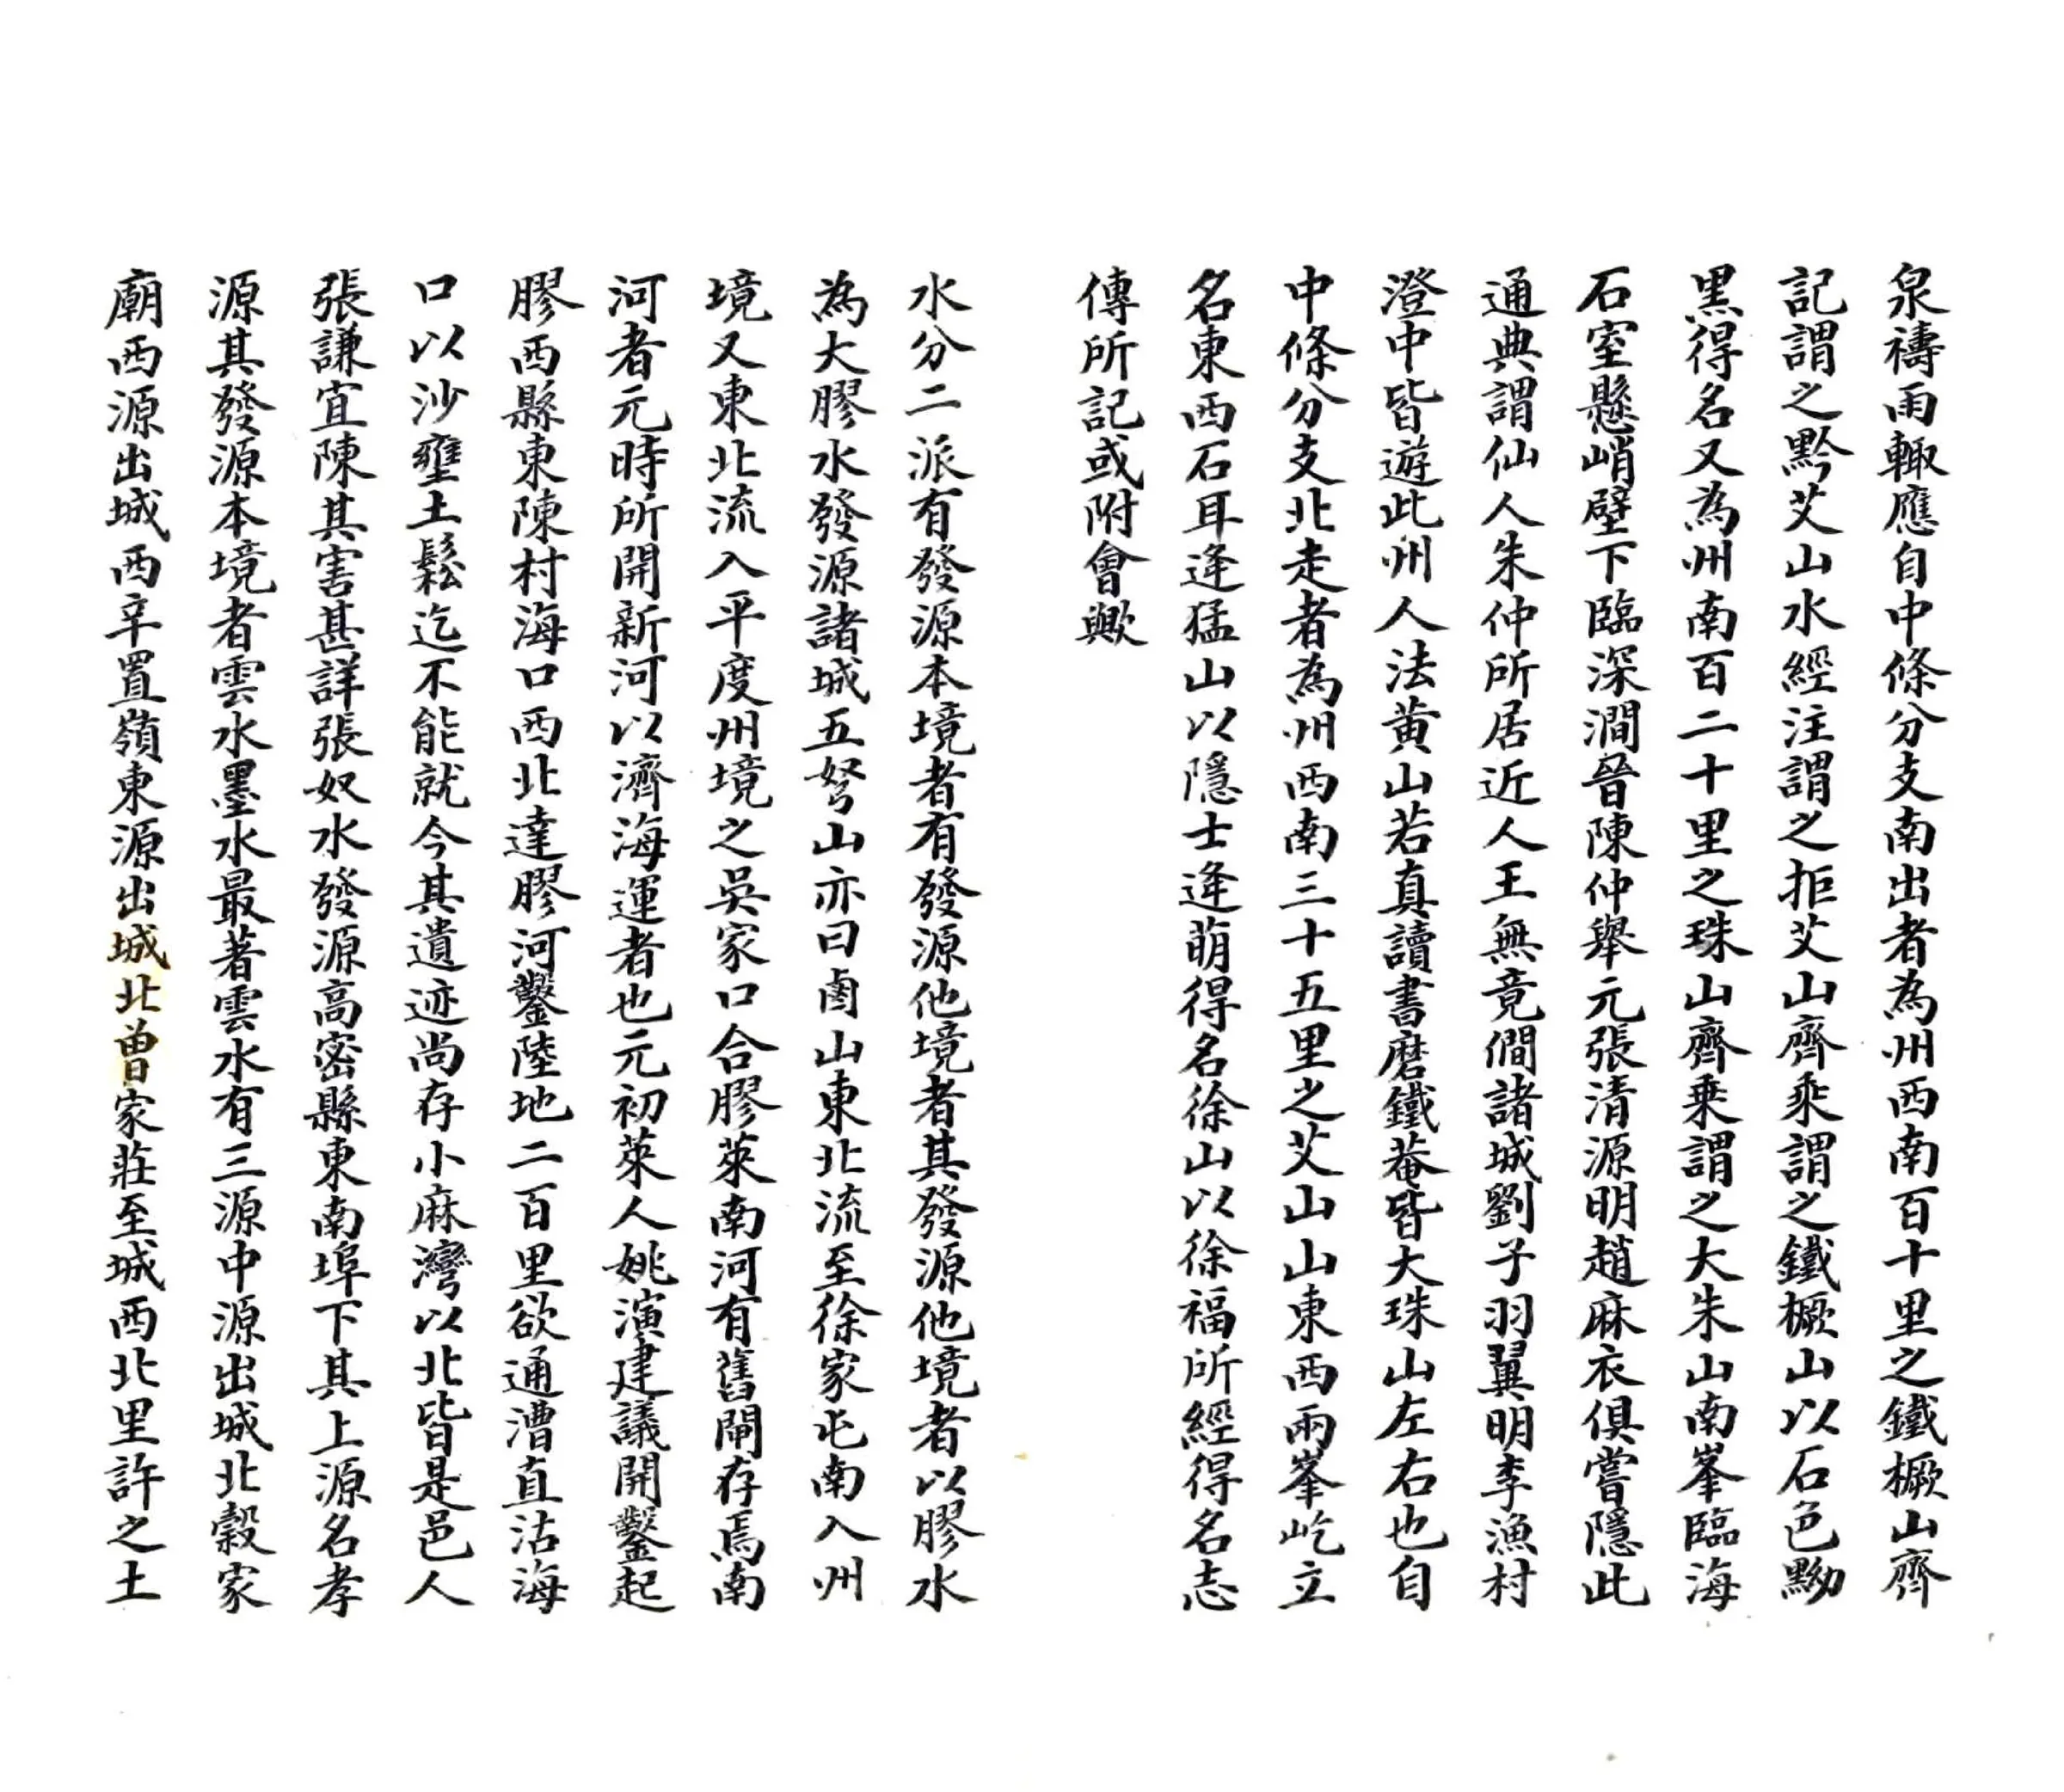 泉禱雨輙應自中條分支南出者為州西南百十里之鐵橛山齊
記謂之黔艾山水經注謂之拒艾山齊乘謂之鐵橛山以石色黝
黑得名又為州南百二十里之珠山齊乗謂之大朱山南峯臨海
石室懸峭壁下臨深澗晉陳仲舉元張清源明趙麻衣俱嘗隱此
通典謂仙人朱仲所居近人王無竟僩諸城劉子羽翼明李漁村
澄中皆遊此州人法黄山若真讀書磨鐵菴皆大珠山左右也自
中條分支北走者為州西南三十五里之艾山山東西兩峯屹立
名東西石耳逄猛山以隱士逄萌得名徐山以徐福所經得名志
傳所記或附會歟
水分二派有發源本境者有發源他境者其發源他境者以膠水
為大膠水發源諸城五弩山亦曰鹵山東北流至徐家屯南入州
境又東北流入平度州境之吳家口合膠萊南河有舊閘存焉南
河者元時所開新河以濟海運者也元初萊人姚演建議開鑿起
膠西縣東陳村海口西北達膠河鑿陸地二百里欲通漕直沽海
口以沙壅土鬆迄不能就今其遺迹尚存小麻灣以北皆是邑人
張謙宜陳其害甚詳張奴水發源高密縣東南埠下其上源名孝
源其發源本境者雲水墨水最著雲水有三源中源出城北穀家
廟西源出城西辛置嶺東源出城北曽家莊至城西北里許之土